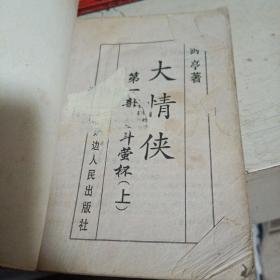 亭著
大情侠
第一
斗萤杯(上)
边人民出版社